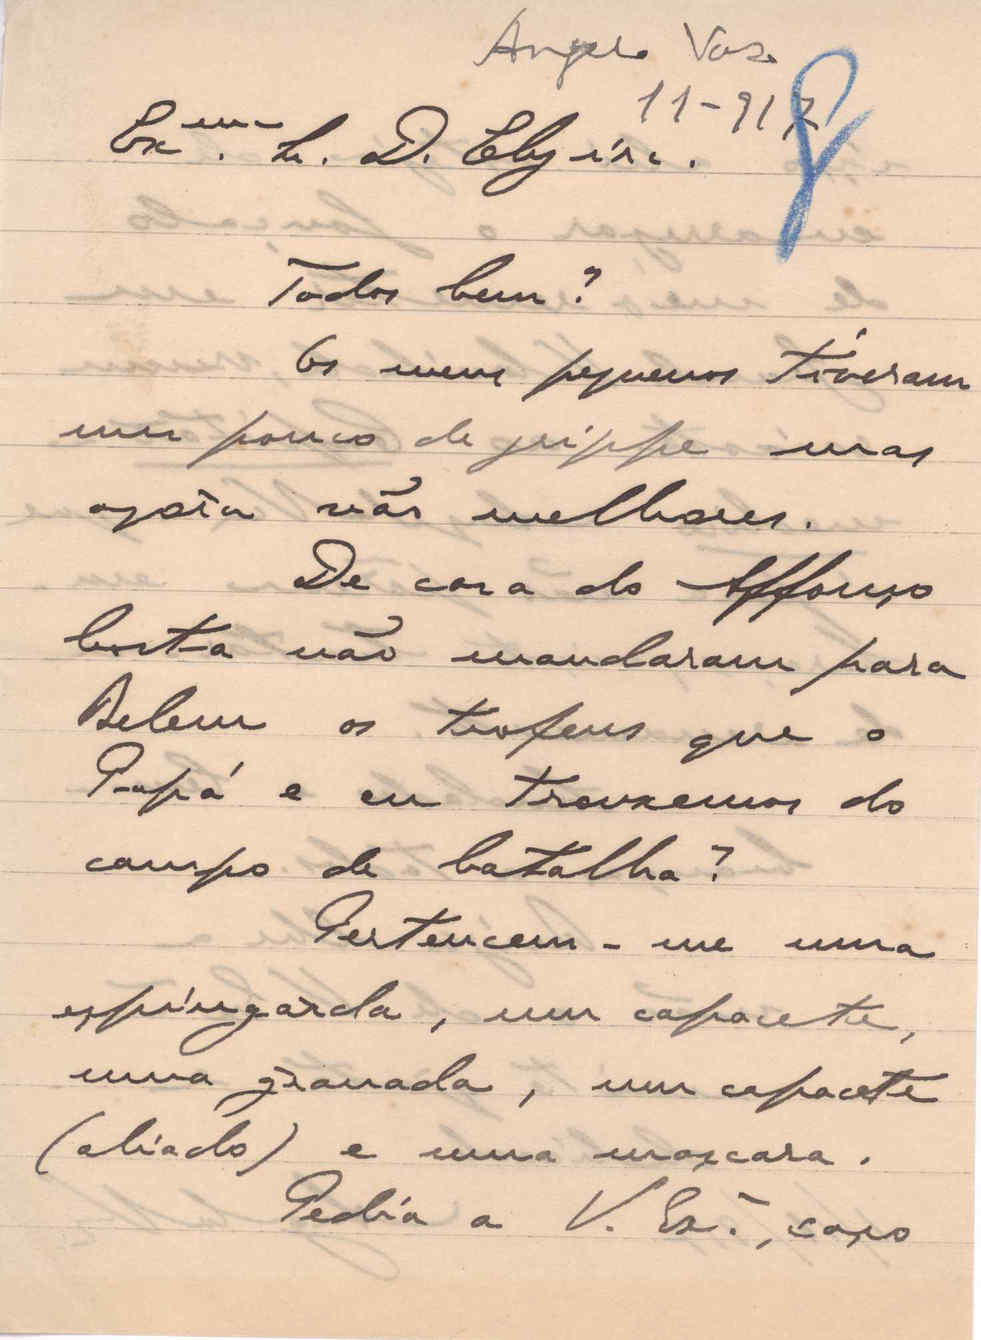 Angelo Vaz
11-917
8
Ex.ma S. D. Elzira.
Todos bem?
Os meus pequenos tiveram
um pouco de grippe mas
agora vão melhores.
De casa do Affonso
Costa não mandaram para
Belem os trofeus que o
Papá e eu trouxemos do
campo de batalha?
Pertencem-me uma
espingarda, um capacete,
uma granada, um capacete
(aliado) e uma mascara.
Pedia a V. Ex.ª, caso